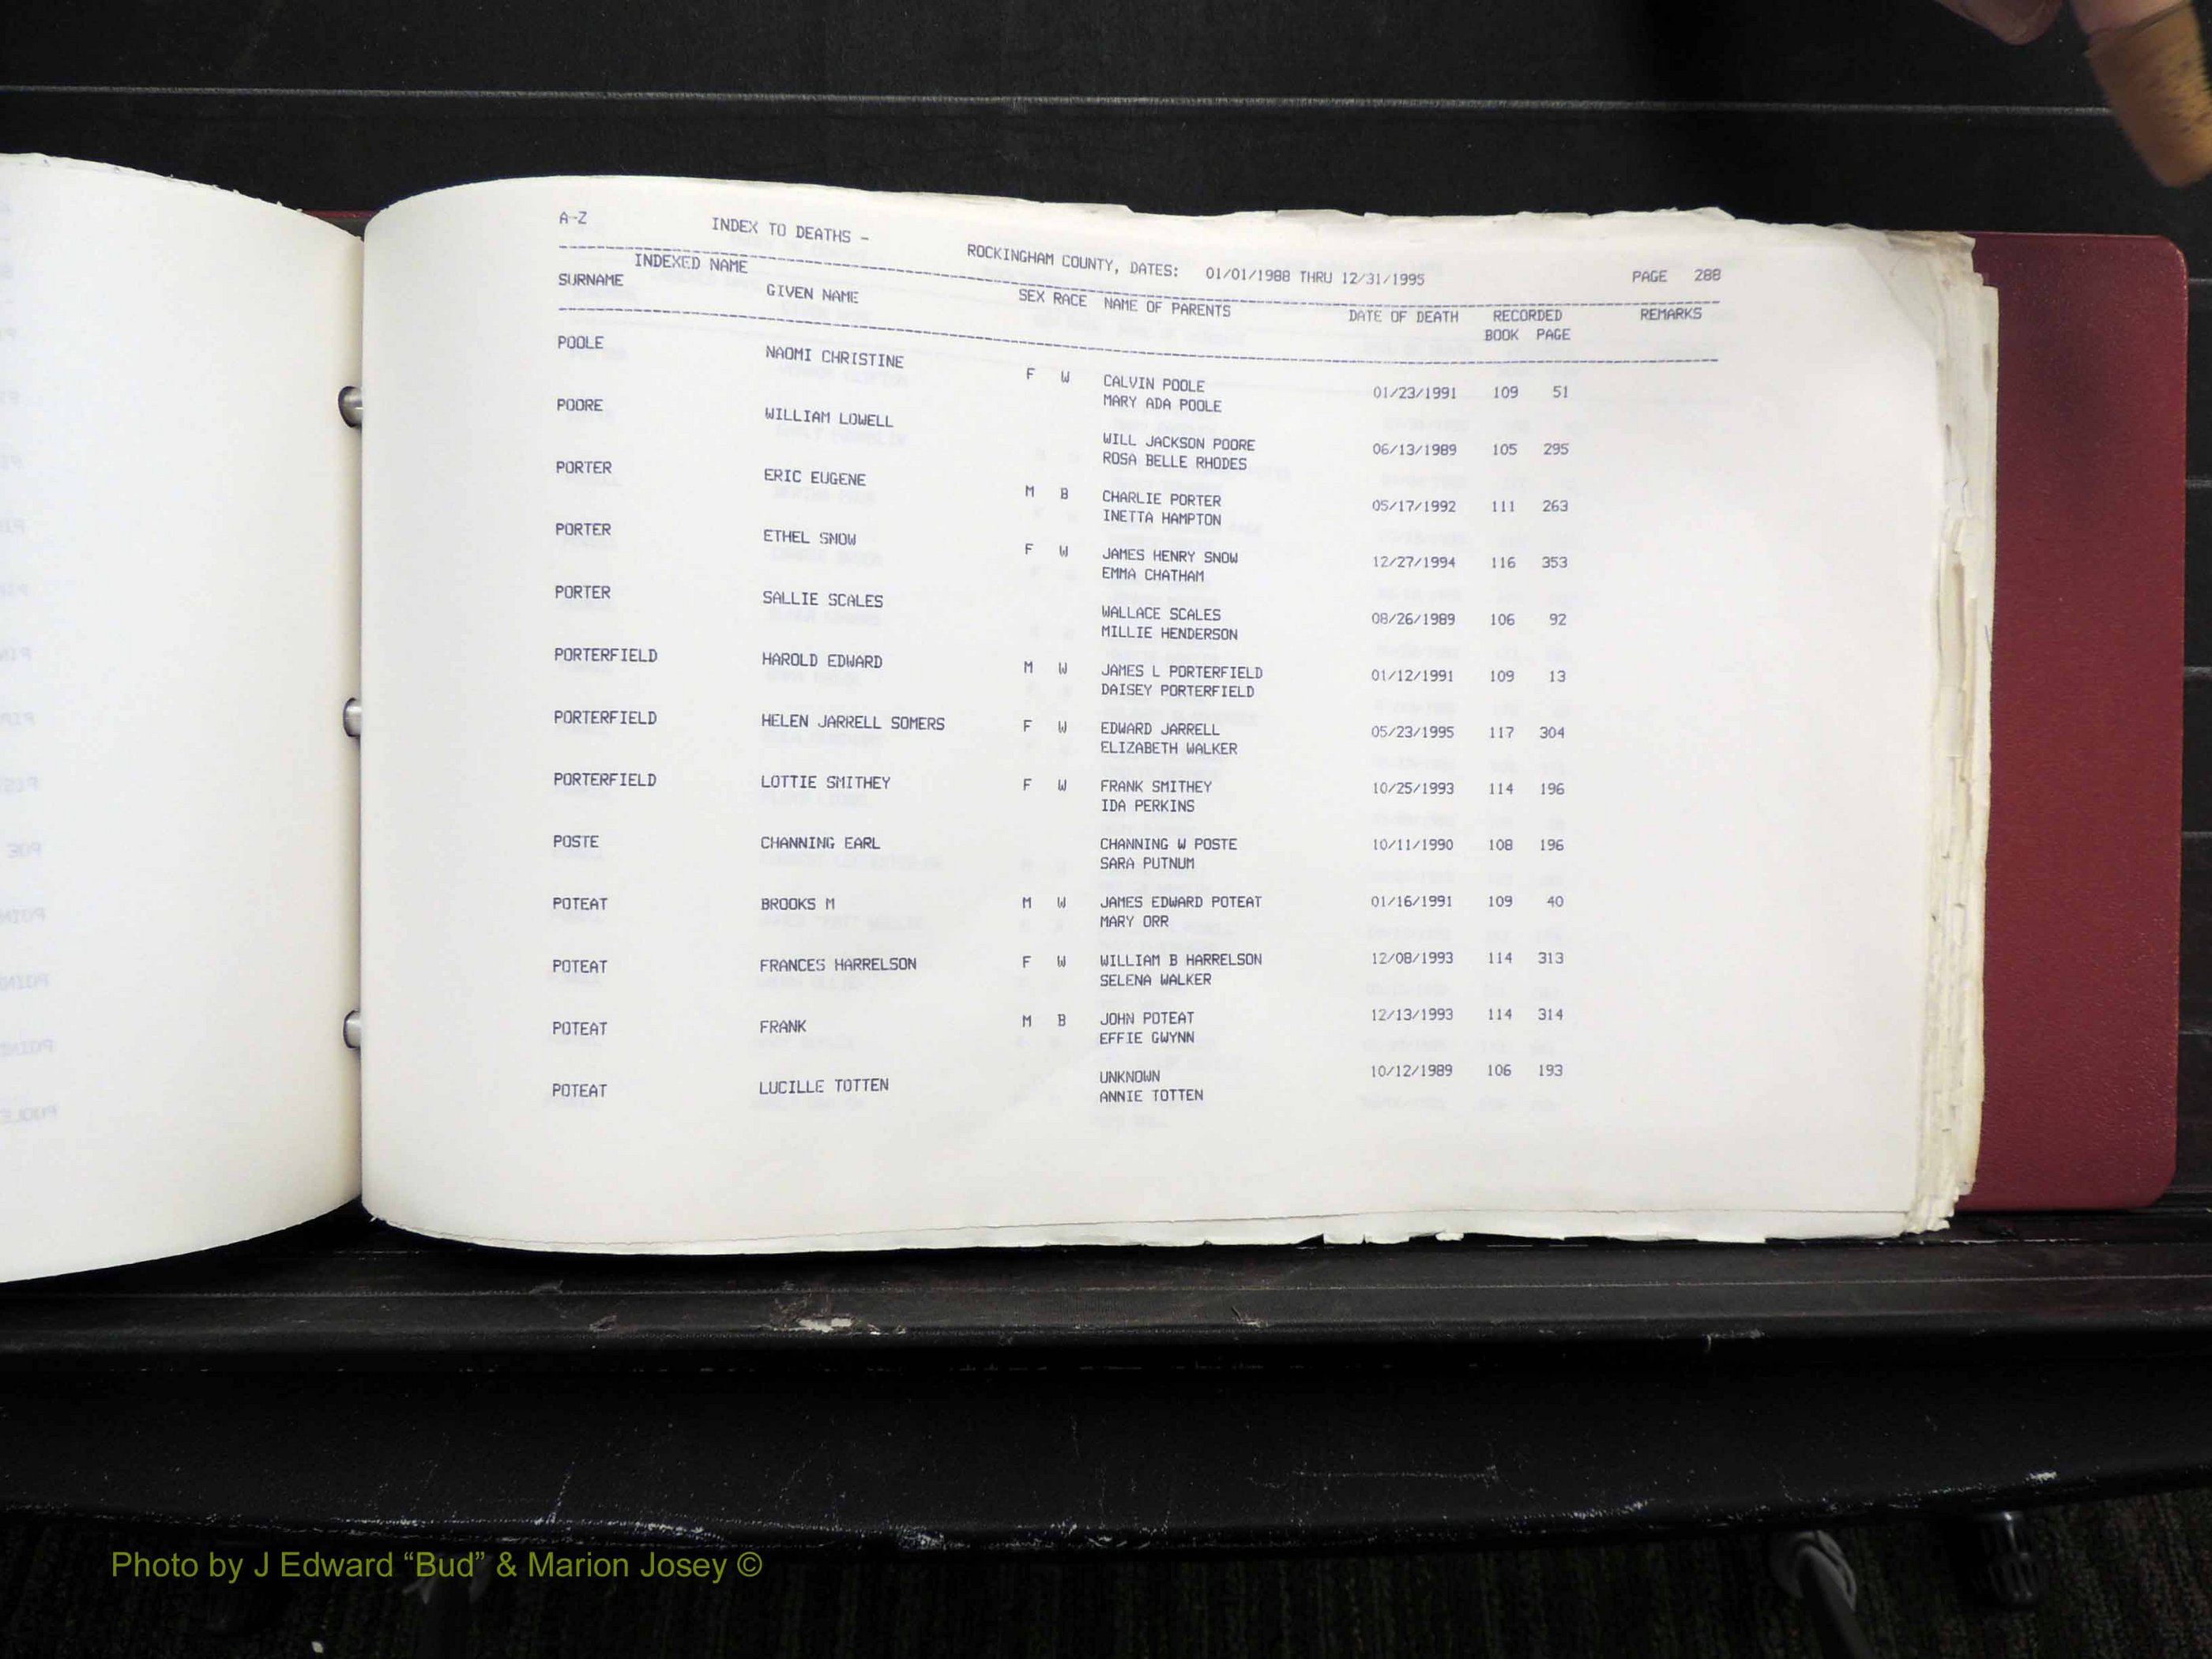 A-Z INDEX TO DEATHS - ROCKINGHAM COUNTY, DATES: 01/01/1988 THRU 12/31/1995 PAGE 288
INDEXED NAME
SURNAME GIVEN NAME SEX RACE NAME OF PARENTS DATE OF DEATH RECORDED REMARKS
BOOK PAGE
POOLE NAOMI CHRISTINE F W CALVIN POOLE 01/23/1991 109 51
MARY ADA POOLE
POORE WILLIAM LOWELL WILL JACKSON POORE 06/13/1989 105 295
ROSA BELLE RHODES
PORTER ERIC EUGENE M B CHARLIE PORTER 05/17/1992 111 263
INETTA HAMPTON
PORTER ETHEL SNOW F W JAMES HENRY SNOW 12/27/1994 116 353
EMMA CHATHAM
PORTER SALLIE SCALES WALLACE SCALES 08/26/1989 106 92
MILLIE HENDERSON
PORTERFIELD HAROLD EDWARD M W JAMES L PORTERFIELD 01/12/1991 109 13
DAISEY PORTERFIELD
PORTERFIELD HELEN JARRELL SOMERS F W EDWARD JARRELL 05/23/1995 117 304
ELIZABETH WALKER
PORTERFIELD LOTTIE SMITHEY F W FRANK SMITHEY 10/25/1993 114 196
IDA PERKINS
POSTE CHANNING EARL CHANNING W POSTE 10/11/1990 108 196
SARA PUTNUM
POTEAT BROOKS M M W JAMES EDWARD POTEAT 01/16/1991 109 40
MARY ORR
POTEAT FRANCES HARRELSON F W WILLIAM B HARRELSON 12/08/1993 114 313
SELENA WALKER
POTEAT FRANK M B JOHN POTEAT 12/13/1993 114 314
EFFIE GWYNN
POTEAT LUCILLE TOTTEN UNKNOWN 10/12/1989 106 193
ANNIE TOTTEN
Photo by J Edward “Bud” & Marion Josey ©